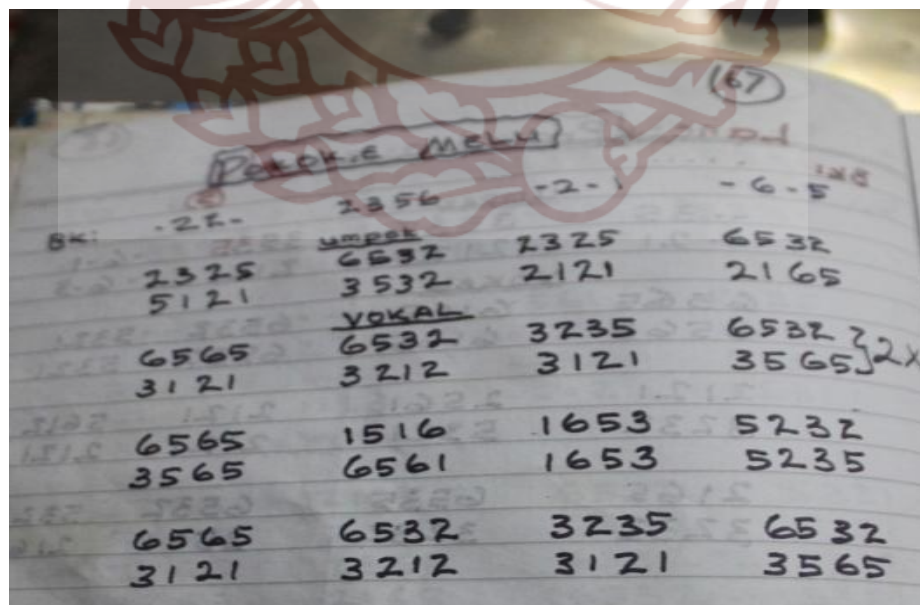 167
POKOK.E MELU
BK: .22. 2356 -2-1 -6-5
UMPAK
2325 6532 2325 6532
5121 3532 2121 2165
VOKAL
6565 6532 3235 6532 }2x
3121 3212 3121 3565
6565 1516 1653 5232
3565 6561 1653 5235
6565 6532 3235 6532
3121 3212 3121 3565